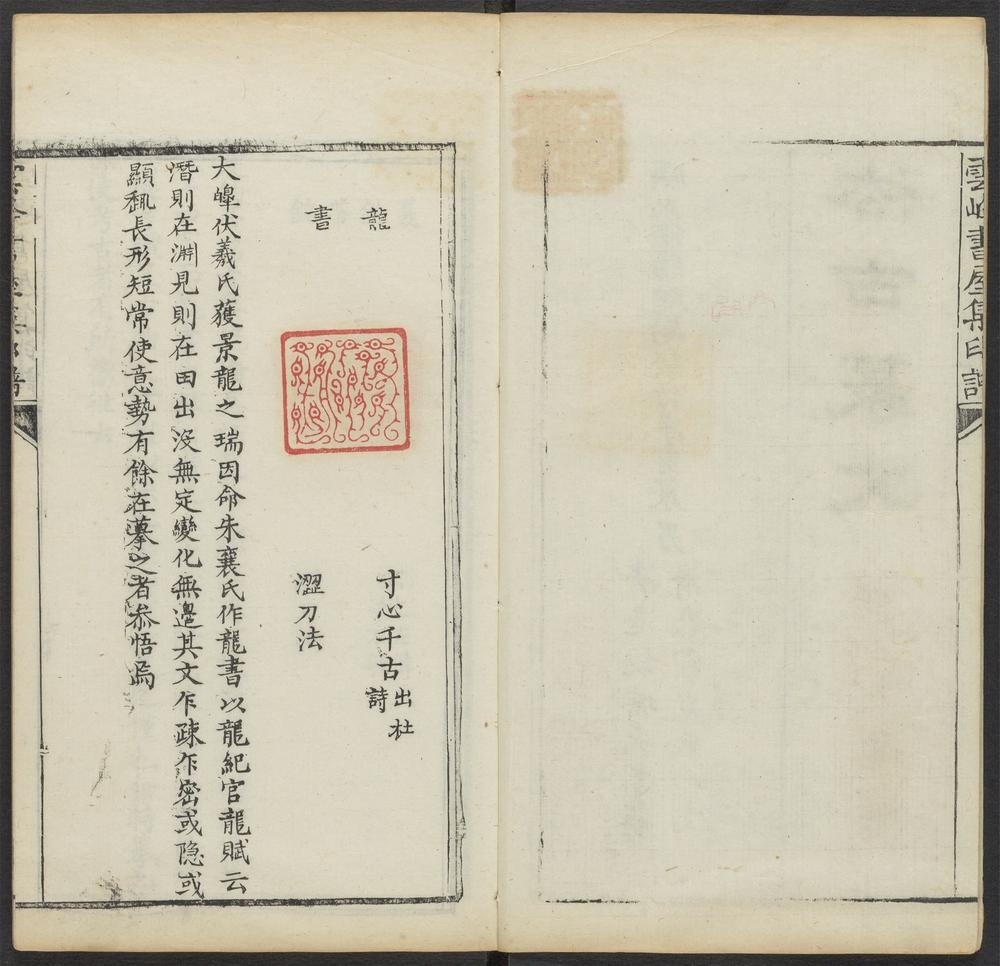 雲書屋集印譜
龍書
寸心千古 出杜詩
澀刀法
大皥伏羲氏獲景龍之瑞因命朱襄氏作龍書以龍紀官龍賦云
潛則在淵見則在田出沒無定變化無邊其文乍疎乍密或隐或
顯長形短常使意勢有餘在摹之者叅悟焉